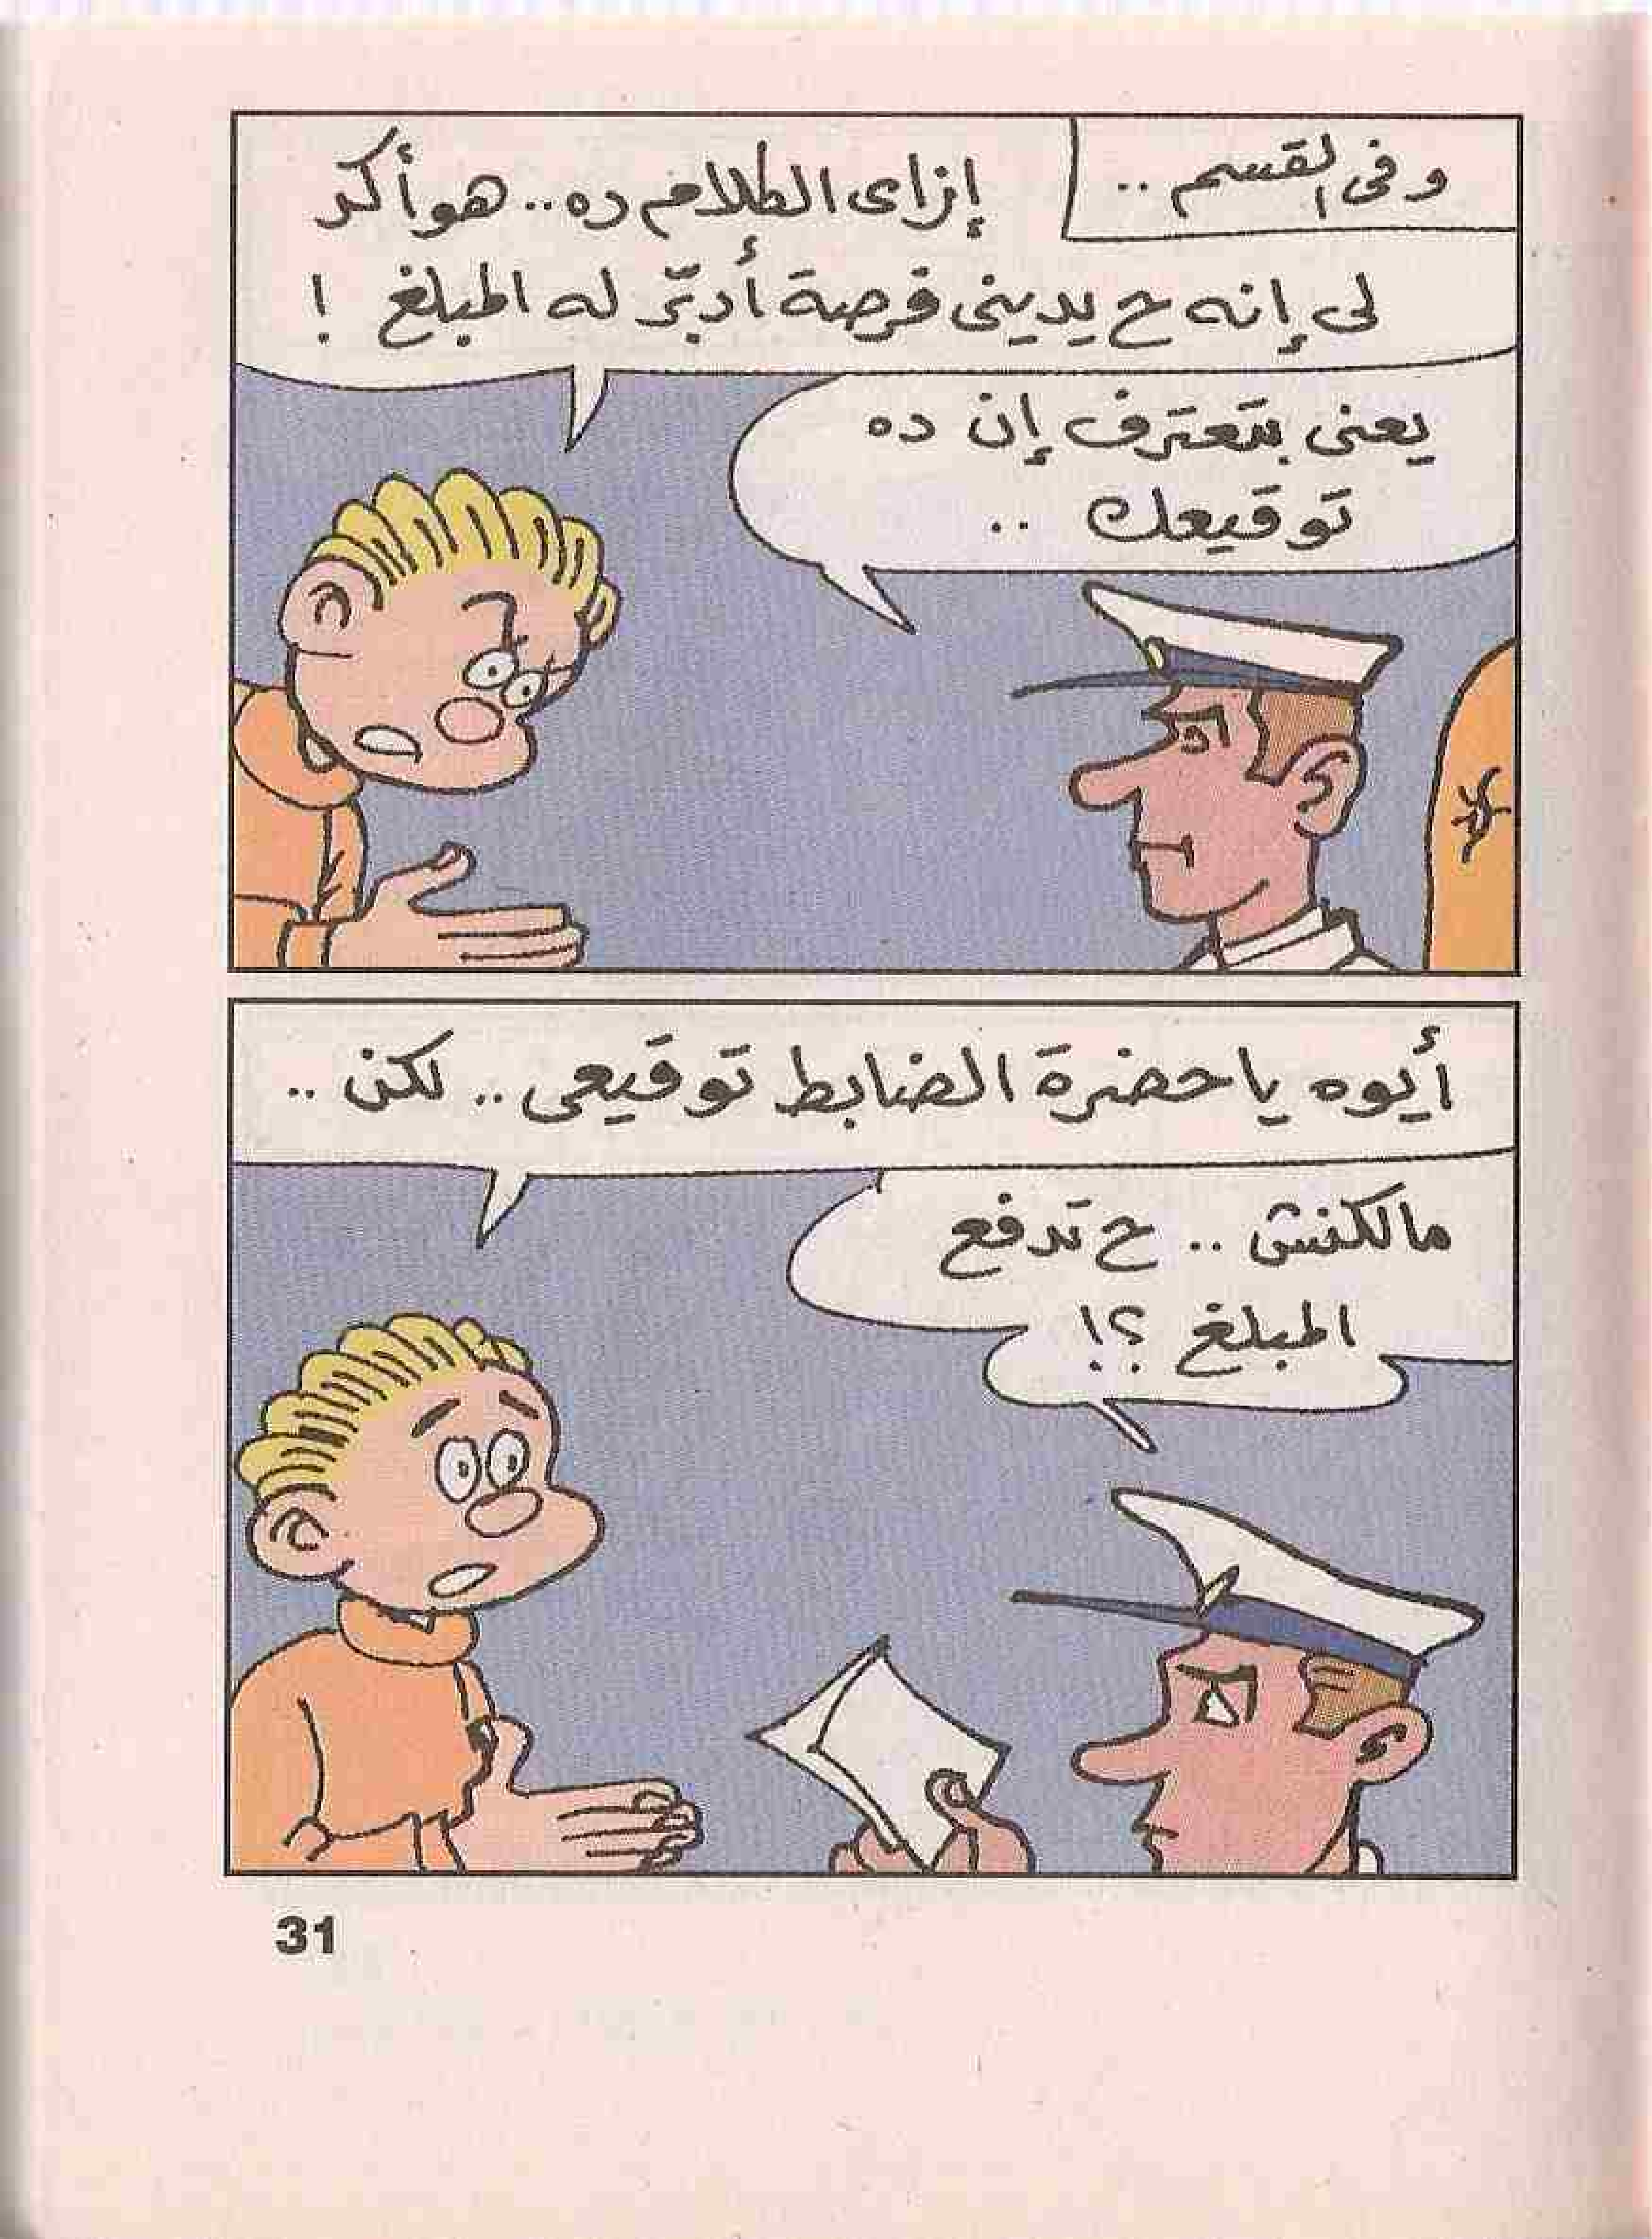 وفى القسم ..
إزاى الكلام ده.. هو أكد
لى إنه ح يدينى فرصة أدبّر له المبلغ !
يعنى بتعترف إن ده
توقيعك ..
أيوه ياحضرة الضابط توقيعى .. لكن ..
مالكنش .. ح تدفع
المبلغ ؟!
31